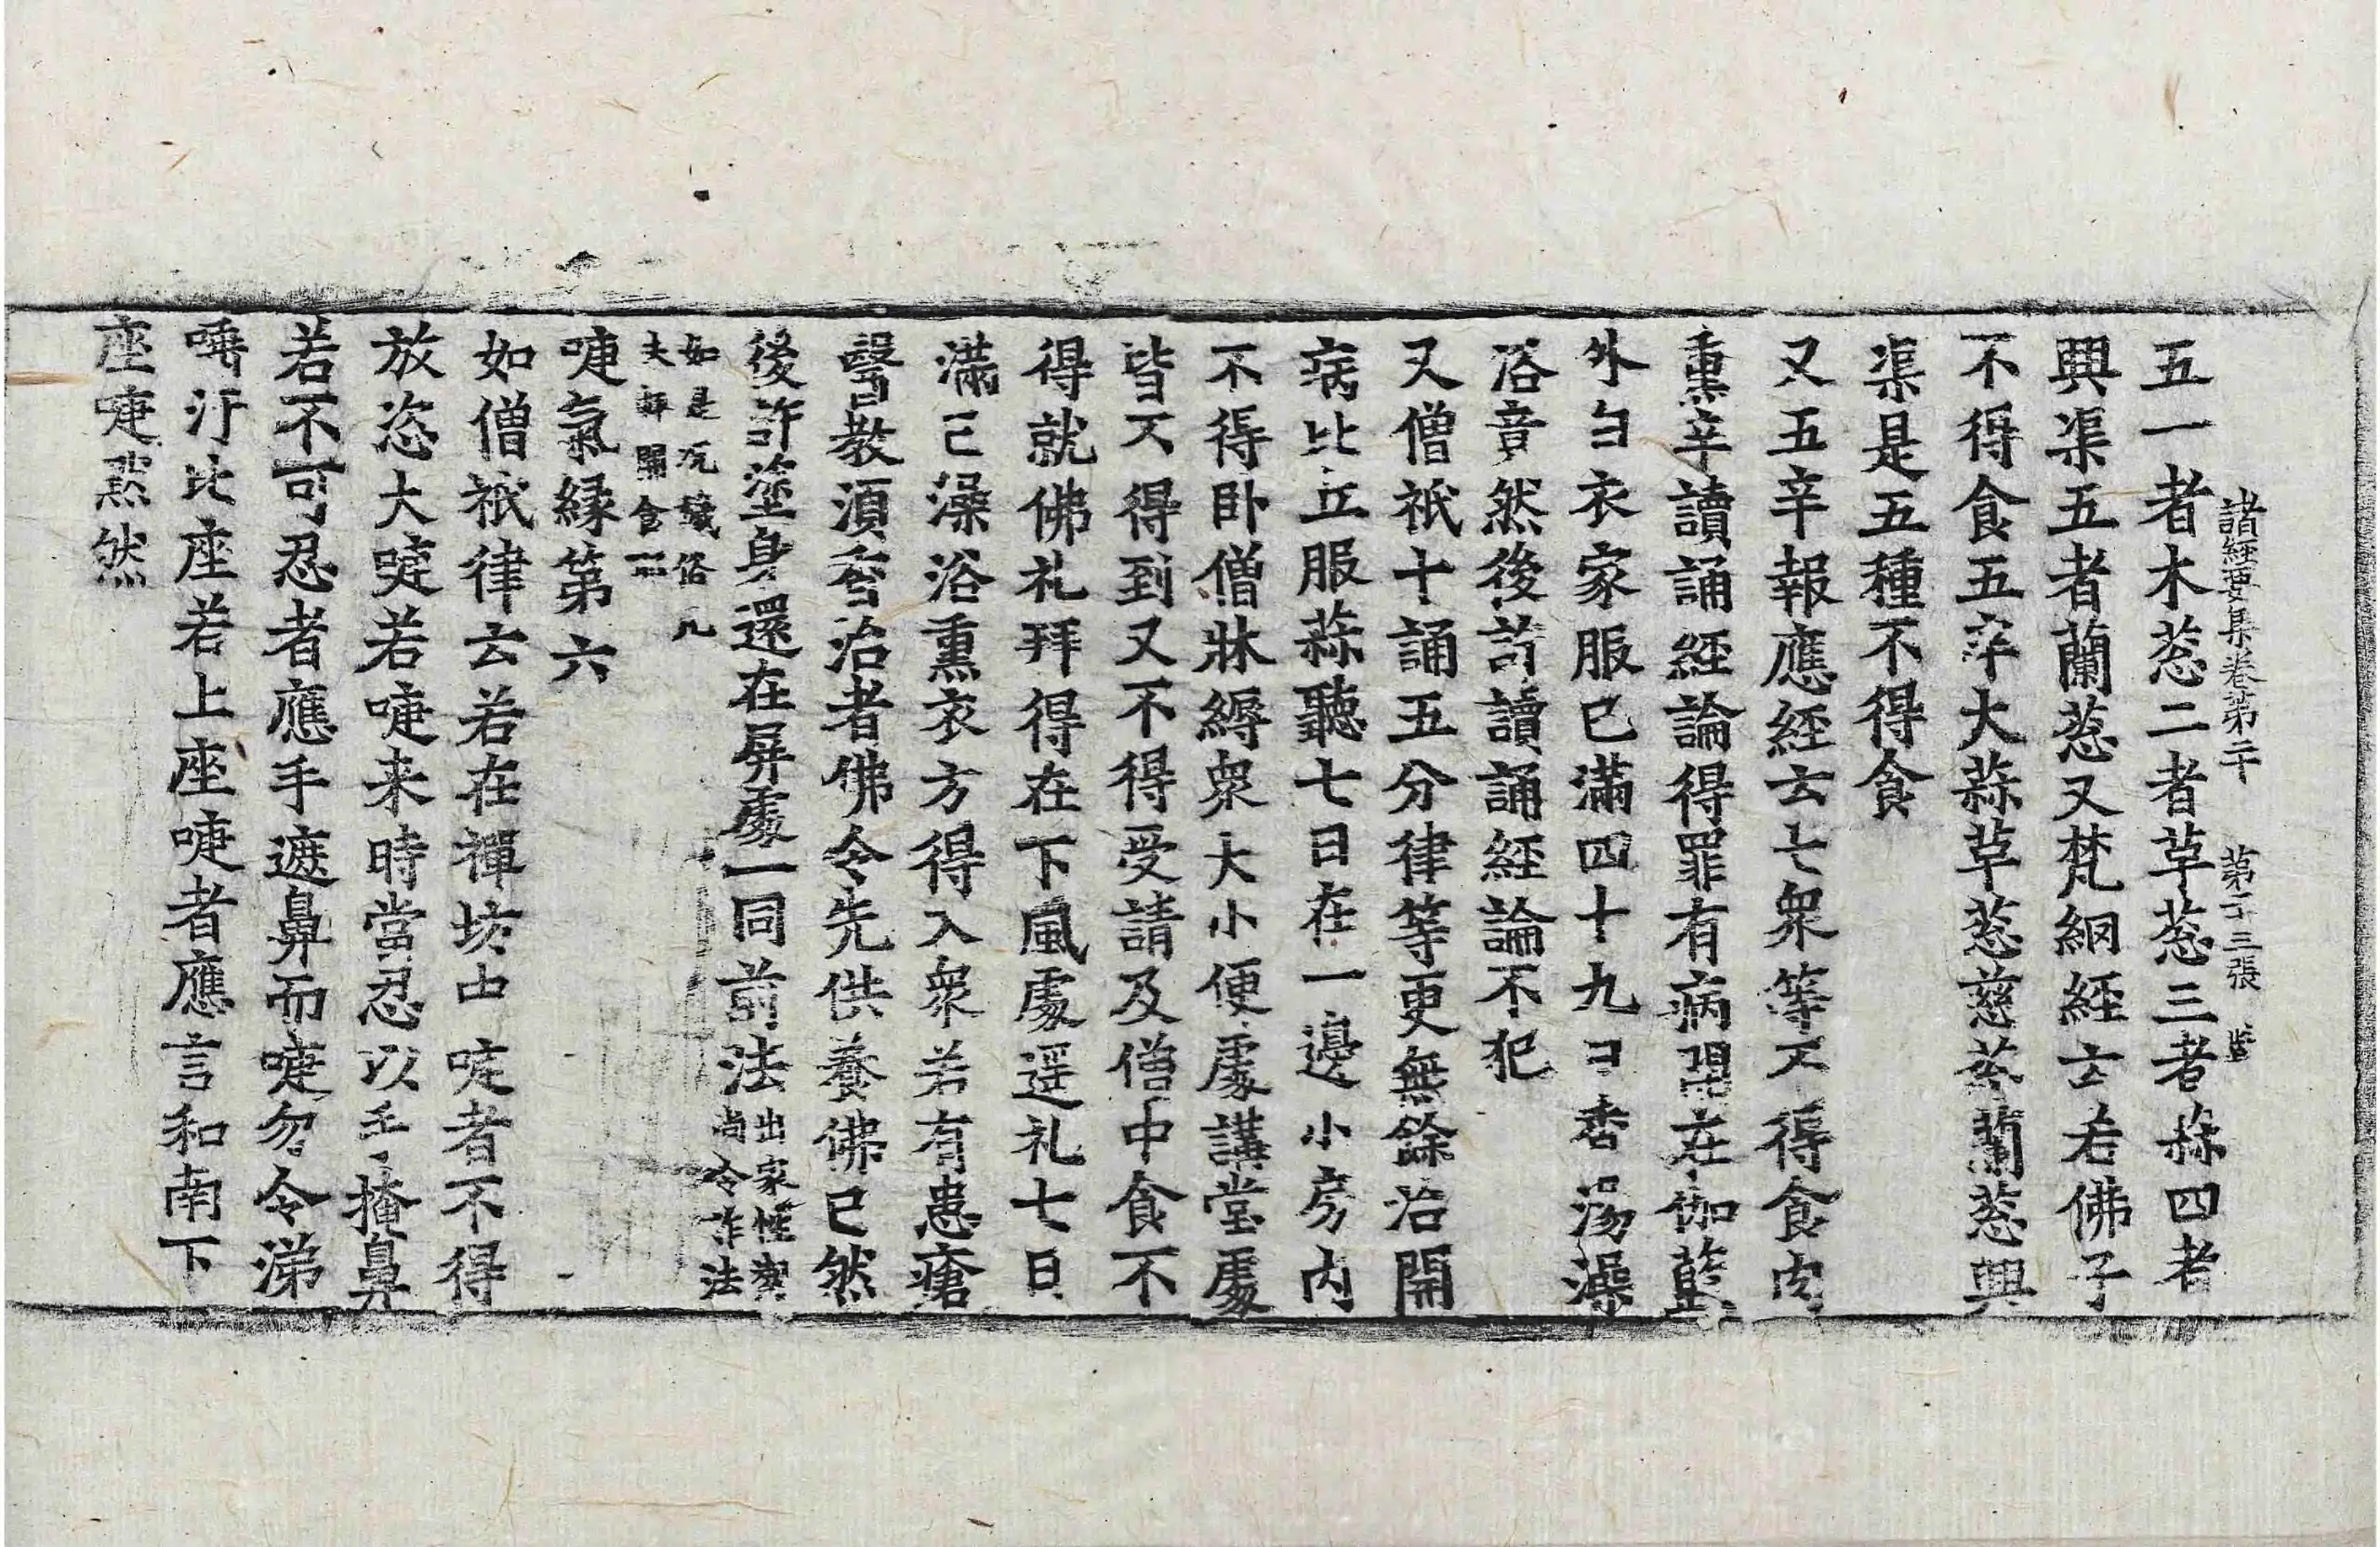 諸經要集卷第二十 第二十三張 𥁕
五一者木葱二者草葱三者蒜四者
興渠五者蘭葱又梵網經云若佛子
不得食五辛大蒜草葱慈葱蘭葱興
渠是五種不得食
又五辛報應經云七衆等不得食肉
熏辛讀誦經論得罪有病開在伽藍
外白衣家服已滿四十九日香湯澡
浴竟然後許讀誦經論不犯
又僧祇十誦五分律等更無餘治開
病比丘服蒜聽七日在一邊小房内
不得卧僧牀縟衆大小便處講堂處
皆不得到又不得受請及僧中食不
得就佛礼拜得在下風處遥礼七日
滿已澡浴熏衣方得入衆若有患瘡
醫教須香治者佛令先供養佛已然
後許塗身還在屏處一同前法出家性潔尚令作法
如是况穢俗凡夫輒開食耶
嚏氣緣第六
如僧祇律云若在禪坊中嚏者不得
放恣大嚏若嚏来時當忍以手掩鼻
若不可忍者應手遮鼻而嚏勿令涕
唾汙比座若上座嚏者應言和南下
座嚏默然